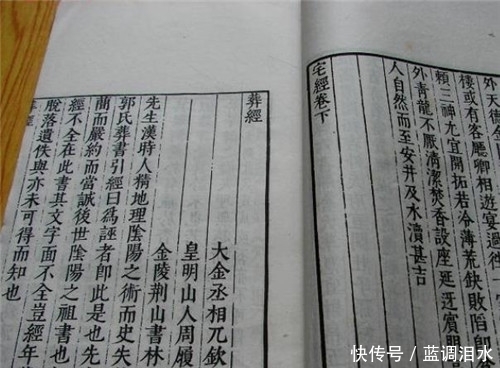 外天德
樓或有客廳卿相遊宴逍遙
賴三神尤宜開拓若冷薄荒缺敗陷即
外青龍不厭清潔焚香設座延迓賓朋
人自然而至安井及水瀆甚吉
宅經卷下
葬經
大金丞相兀欽
皇明山人周履
金陵荆山書林
先生漢時人精地理陰陽之術而史失
郭氏葬書引經曰爲誣者卽此是也先
蕳而嚴約而當誠後世陰陽之祖書也
經不全在此書其文字面不全豈經年
脫落遺佚與亦未可得而知也
快传号/蓝调泪水